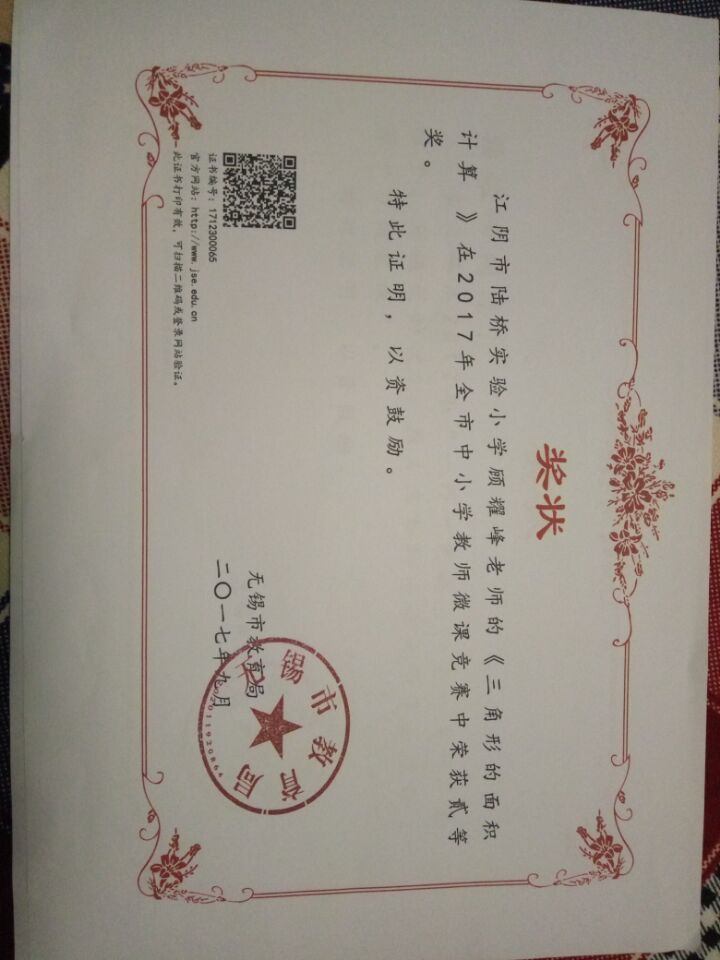 奖状
江阴市陆桥实验小学顾耀峰老师的《三角形的面积
计算 》在2017年全市中小学教师微课竞赛中荣获贰等
奖。
特此证明，以资鼓励。
无锡市教育局
二〇一七年九月
锡市教育局
证书编号：1712300065
官方网站：http://www.jse.edu.cn
此证书打印有效，可扫描二维码或登录网站验证。